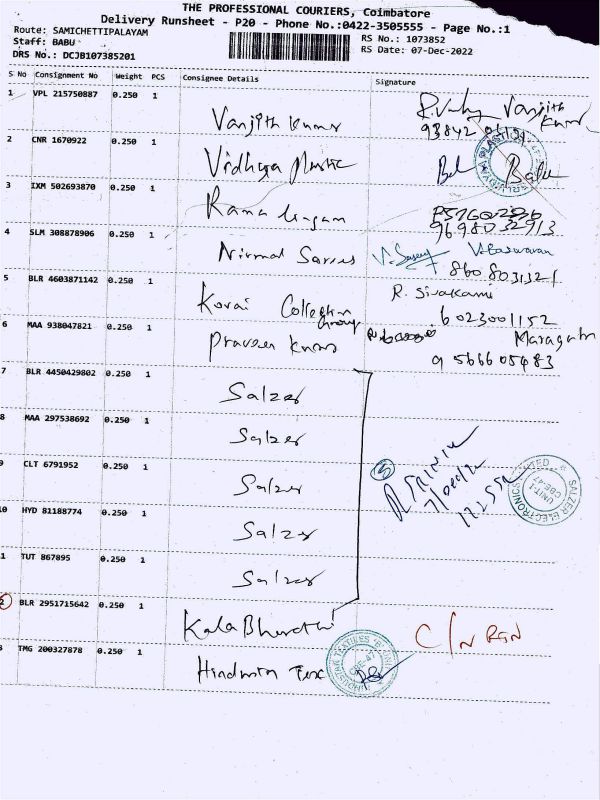 THE PROFESSIONAL COURIERS, Coimbatore
Delivery Runsheet - P20 - Phone No.:0422-3505555 - Page No.:1
Route: SAMICHETTIPALAYAM
Staff: BABU
DRS No.: DCJB107385201
RS No.: 1073852
RS Date: 07-Dec-2022
S No Consignment No Weight PCS Consignee Details Signature
1 VPL 215750887 0.250 1
Vanjith Kumar
Vanjith Kumar
2 CNR 1670922 0.250 1
Vidhya Plastic
3 IXM 502693870 0.250 1
Rama lingam
9698032913
4 SLM 308878906 0.250 1
Nirmal
8608031321
5 BLR 4603871142 0.250 1
Kovai Collection Group
R. Sivakami
6023001152
6 MAA 938047821 0.250 1
Praveen Kumar
9566605483
7 BLR 4450429802 0.250 1
Salzer
8 MAA 297538692 0.250 1
Salzer
9 CLT 6791952 0.250 1
Salzer
10 HYD 81188774 0.250 1
Salzer
1 TUT 867895 0.250 1
Salzer
SALZER ELECTRONIC
UNIT
2 BLR 2951715642 0.250 1
Kala Bharathi
C/N RGN
3 TMG 200327878 0.250 1
Hindustan Tex